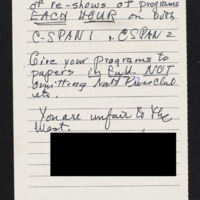 of re-shows of programs
EACH HOUR on both
C-SPAN 1 + CSPAN 2
Give your programs to
papers in full NOT
omitting Natl Press Club
etc.
You are unfair to the
West.